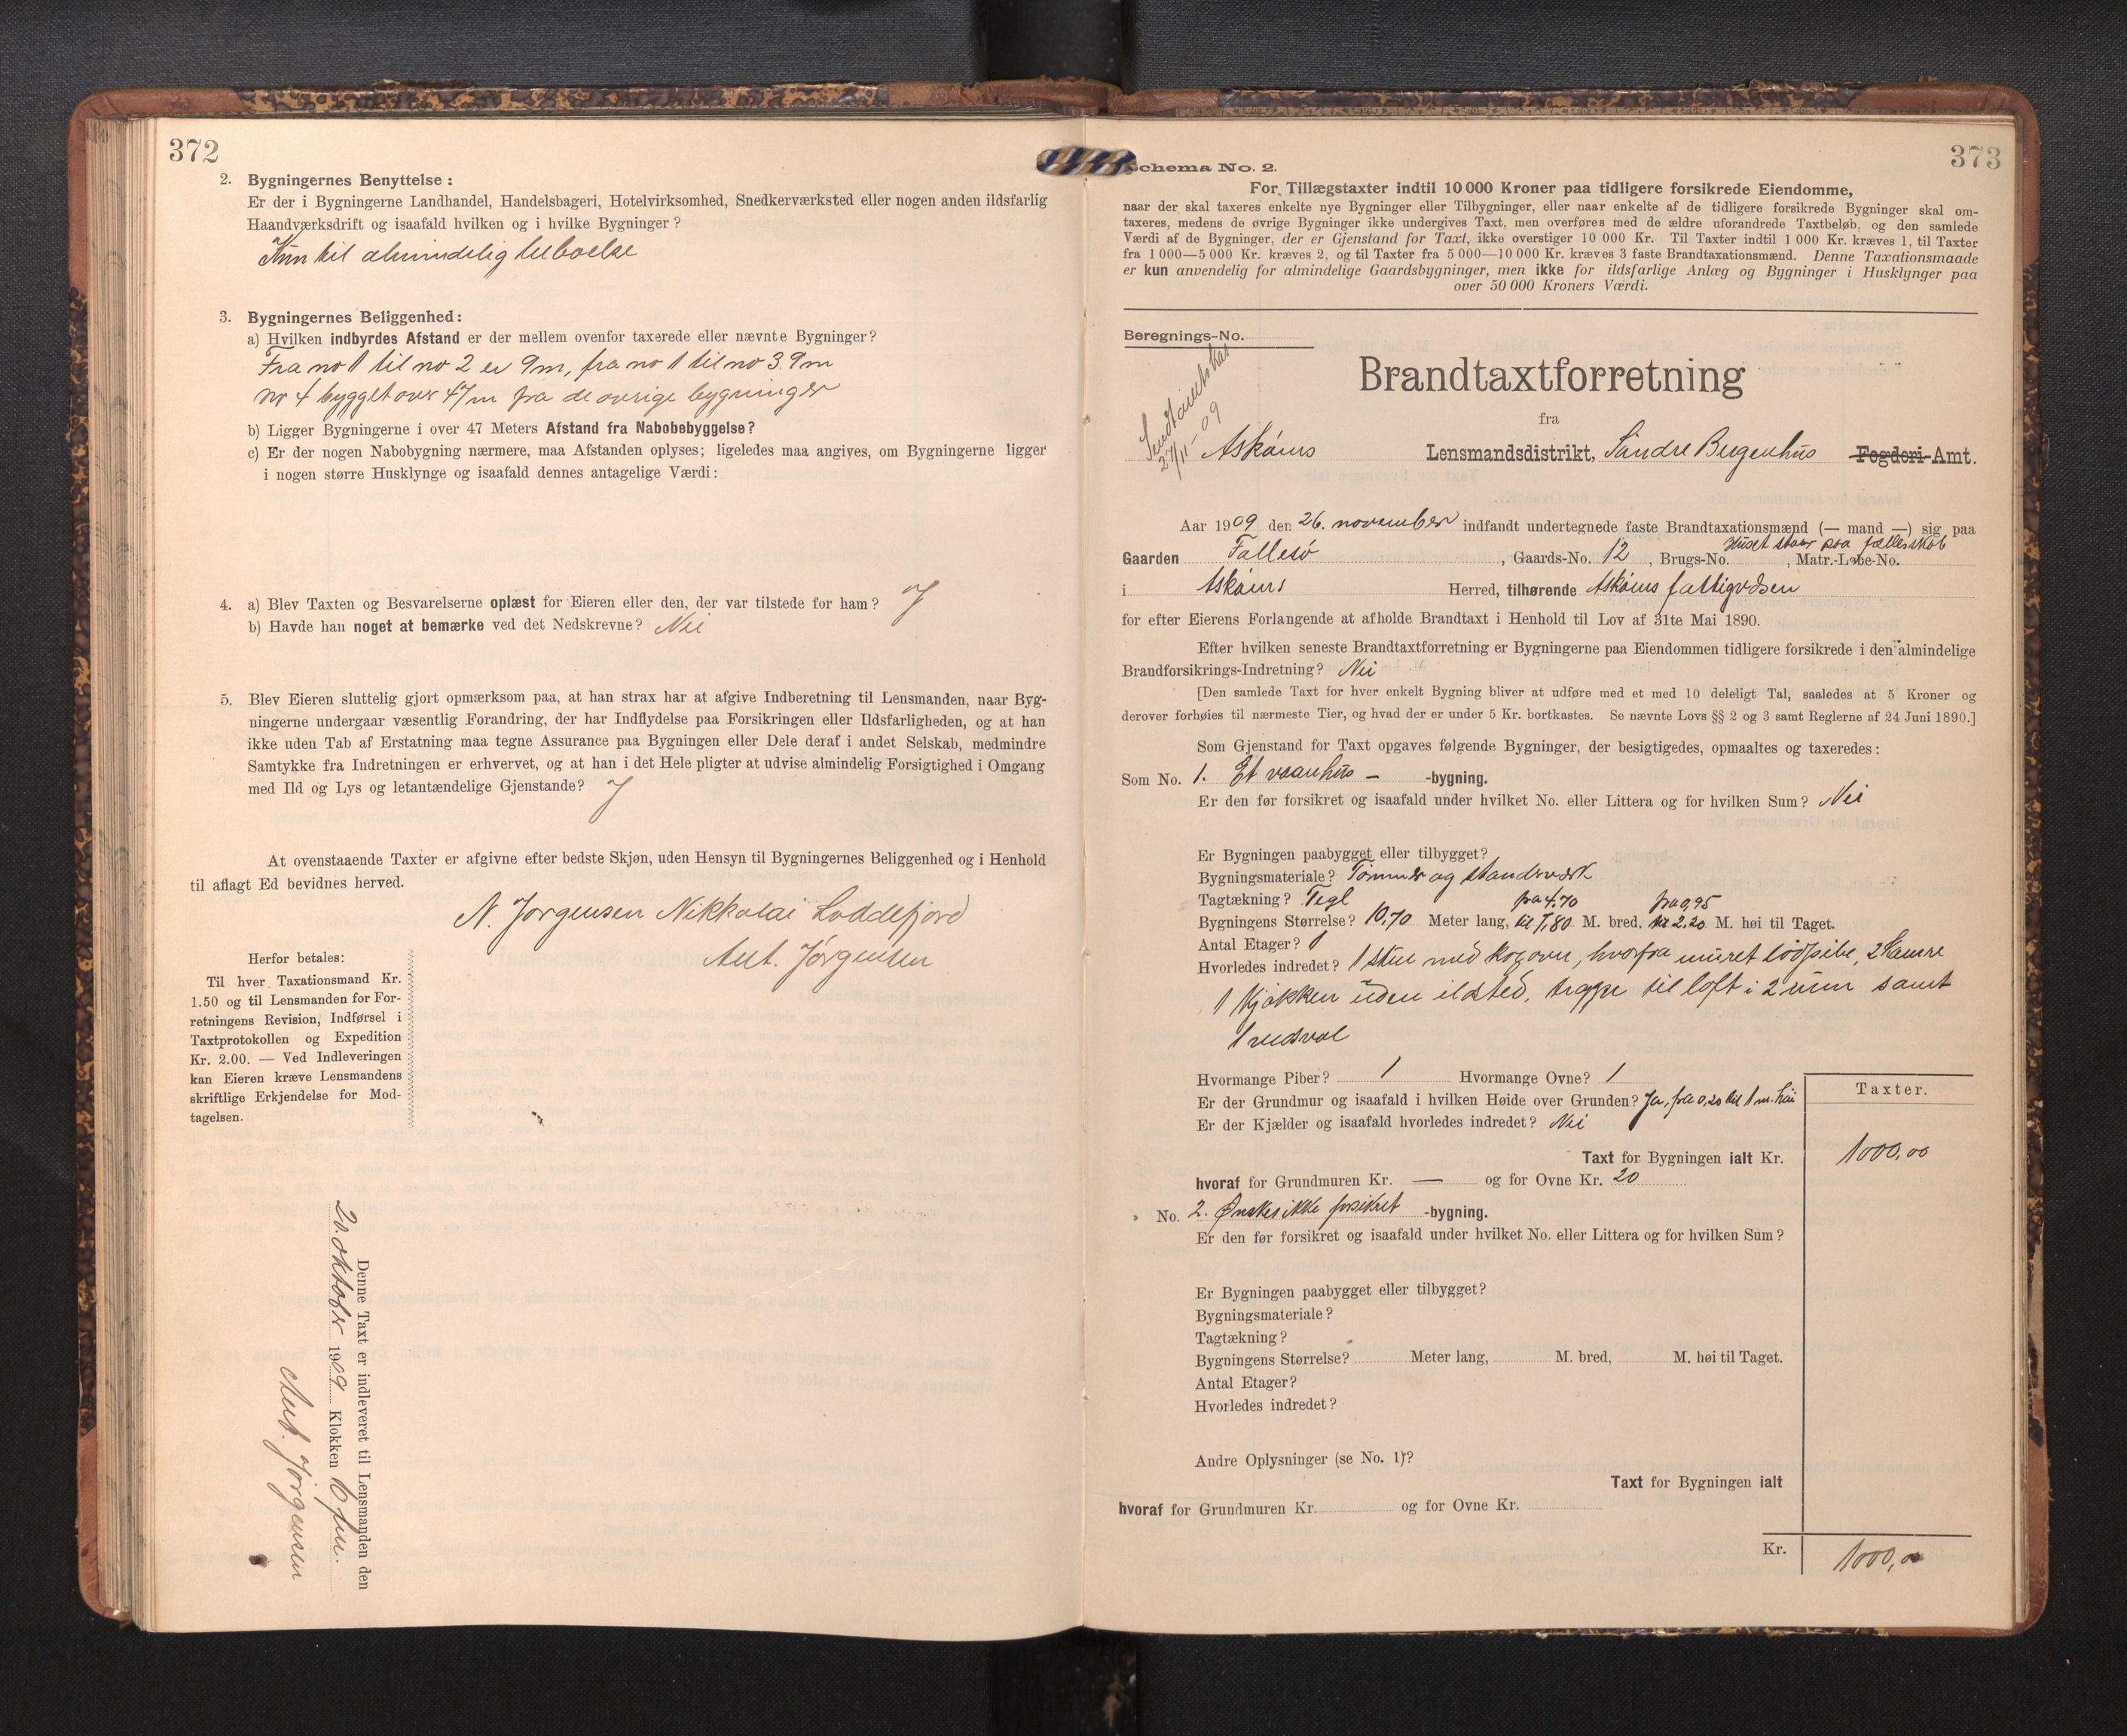 372
2. Bygningernes Benyttelse:
Er der i Bygningerne Landhandel, Handelsbageri, Hotelvirksomhed, Snedkerværksted eller nogen anden ildsfarlig
Haandværksdrift og isaafald hvilken og i hvilke Bygninger?
Kun til almindelig beboelse
3. Bygningernes Beliggenhed:
a) Hvilken indbyrdes Afstand er der mellem ovenfor taxerede eller nævnte Bygninger?
Fra no 1 til no 2 er 9m, fra no 1 til no 3. 9m
no 4 bygget over 47m fra de øvrige bygninger
b) Ligger Bygningerne i over 47 Meters Afstand fra Nabobebyggelse?
c) Er der nogen Nabobygning nærmere, maa Afstanden oplyses; ligeledes maa angives, om Bygningerne ligger
i nogen større Husklynge og isaafald dennes antagelige Værdi:
4. a) Blev Taxten og Besvarelserne oplæst for Eieren eller den, der var tilstede for ham? J
b) Havde han noget at bemærke ved det Nedskrevne? Nei
5. Blev Eieren sluttelig gjort opmærksom paa, at han strax har at afgive Indberetning til Lensmanden, naar Byg-
ningerne undergaar væsentlig Forandring, der har Indflydelse paa Forsikringen eller Ildsfarligheden, og at han
ikke uden Tab af Erstatning maa tegne Assurance paa Bygningen eller Dele deraf i andet Selskab, medmindre
Samtykke fra Indretningen er erhvervet, og at han i det Hele pligter at udvise almindelig Forsigtighed i Omgang
med Ild og Lys og letantændelige Gjenstande? J
At ovenstaaende Taxter er afgivne efter bedste Skjøn, uden Hensyn til Bygningernes Beliggenhed og i Henhold
til aflagt Ed bevidnes herved.
N. Jørgensen Nikkolai Loddefjord
Ant. Jørgensen
Herfor betales:
Til hver Taxationsmand Kr.
1.50 og til Lensmanden for For-
retningens Revision, Indførsel i
Taxtprotokollen og Expedition
Kr. 2.00. — Ved Indleveringen
kan Eieren kræve Lensmandens
skriftlige Erkjendelse for Mod-
tagelsen.
Denne Taxt er indleveret til Lensmanden den
20. oktober 1909 Klokken 6
Ant. Jørgensen
373
Schema No. 2.
For Tillægstaxter indtil 10 000 Kroner paa tidligere forsikrede Eiendomme,
naar der skal taxeres enkelte nye Bygninger eller Tilbygninger, eller naar enkelte af de tidligere forsikrede Bygninger skal om-
taxeres, medens de øvrige Bygninger ikke undergives Taxt, men overføres med de ældre uforandrede Taxtbeløb, og den samlede
Værdi af de Bygninger, der er Gjenstand for Taxt, ikke overstiger 10 000 Kr. Til Taxter indtil 1 000 Kr. kræves 1, til Taxter
fra 1 000—5 000 Kr. kræves 2, og til Taxter fra 5 000—10 000 Kr. kræves 3 faste Brandtaxationsmænd. Denne Taxationsmaade
er kun anvendelig for almindelige Gaardsbygninger, men ikke for ildsfarlige Anlæg og Bygninger i Husklynger paa
over 50 000 Kroners Værdi.
Beregnings-No.
27/11-09
Brandtaxtforretning
fra
Askøens Lensmandsdistrikt, Søndre Bergenhus Fogderi-Amt.
Aar 1909 den 26. november indfandt undertegnede faste Brandtaxationsmænd (— mand —) sig paa
Huset staar paa fællesskab
Gaarden Follesø, Gaards-No. 12, Brugs-No. , Matr.-Løbe-No.
i Askøens Herred, tilhørende Askøens fattigvæsen
for efter Eierens Forlangende at afholde Brandtaxt i Henhold til Lov af 31te Mai 1890.
Efter hvilken seneste Brandtaxtforretning er Bygningerne paa Eiendommen tidligere forsikrede i den almindelige
Brandforsikrings-Indretning? Nei
[Den samlede Taxt for hver enkelt Bygning bliver at udføre med et med 10 deleligt Tal, saaledes at 5 Kroner og
derover forhøies til nærmeste Tier, og hvad der er under 5 Kr. bortkastes. Se nævnte Lovs §§ 2 og 3 samt Reglerne af 24 Juni 1890.]
Som Gjenstand for Taxt opgaves følgende Bygninger, der besigtigedes, opmaaltes og taxeredes:
Som No. 1. Et vaanhus — -bygning.
Er den før forsikret og isaafald under hvilket No. eller Littera og for hvilken Sum? Nei
Er Bygningen paabygget eller tilbygget?
Bygningsmateriale? Tømmer og standværk
Tagtækning? Tegl fra 4,70 fra 0,95
Bygningens Størrelse? 10,70 Meter lang, til 7,80 M. bred, til 2,20 M. høi til Taget.
Antal Etager? 1
Hvorledes indredet? 1 stue med kogovn, hvorfra muret lødpibe, 2 Kamre
1 Kjøkken uden ildsted, trappe til loft i 2 rum samt
1 vedsval
Hvormange Piber? 1 Hvormange Ovne? 1
Er der Grundmur og isaafald i hvilken Høide over Grunden? Ja, fra 0,20 til 1 m. høi
Er der Kjælder og isaafald hvorledes indredet? Nei
Taxter.
Taxt for Bygningen ialt Kr. 1000,00
hvoraf for Grundmuren Kr. — og for Ovne Kr. 20
No. 2. Ønskes ikke forsikret -bygning.
Er den før forsikret og isaafald under hvilket No. eller Littera og for hvilken Sum?
Er Bygningen paabygget eller tilbygget?
Bygningsmateriale?
Tagtækning?
Bygningens Størrelse? Meter lang, M. bred, M. høi til Taget.
Antal Etager?
Hvorledes indredet?
Andre Oplysninger (se No. 1)?
Taxt for Bygningen ialt
hvoraf for Grundmuren Kr. og for Ovne Kr.
Kr. 1000,00